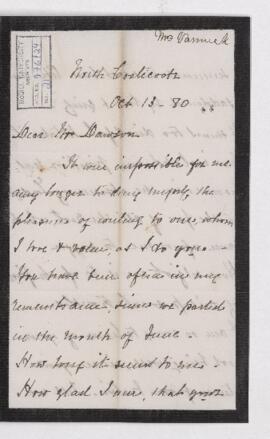 Mrs Vanneck
North Coaticook
Oct 13 - 80
Dear Mrs Dawson
It is impossible for me
any longer to deny myself, the
pleasure of writing to one, whom
I love & value, as I do you -
You have been often in my
remembrance, since we parted
in the month of June -
How long it seems to me -
How glad I was, that your